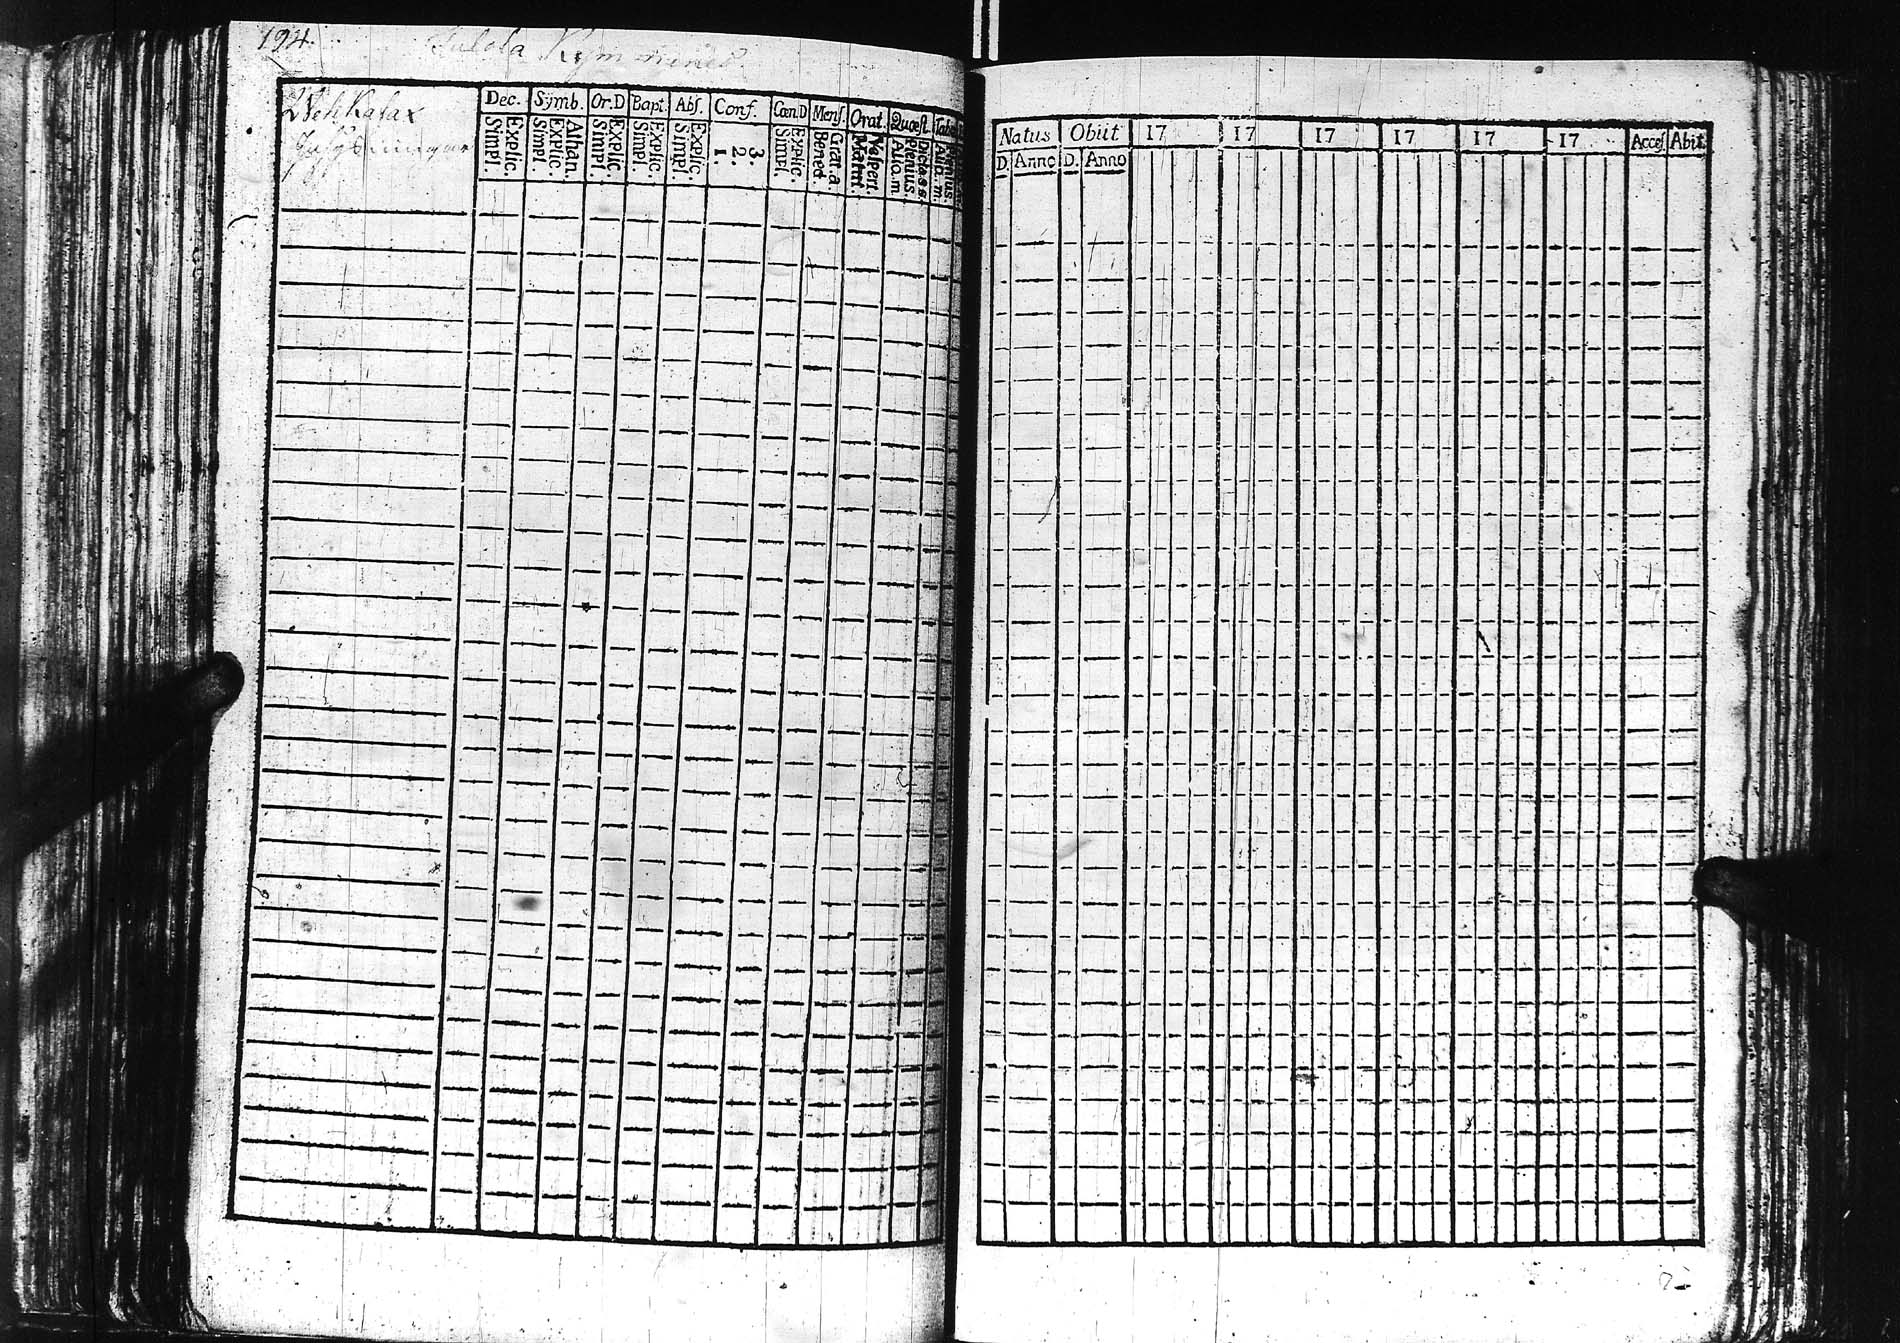 194.
Kymmene
Wehkalax
Dec. Symb. Or.D Bapt. Abſ. Conf. Cœn.D Menſ. Orat. Quœſt.
Explic. Simpl. Athan. Explic. Simpl. Explic. Simpl. Explic. Simpl. Explic. Simpl. 3. 2. 1. Explic. Simpl. Grat.a. Bened. Veſpert. Matut. Dictaſſ. Plenius. Aliq.m. Plenius. Aliq.m.
Natus Obiit 17 17 17 17 17 17 Acceſ. Abiit.
D. Anno D. Anno